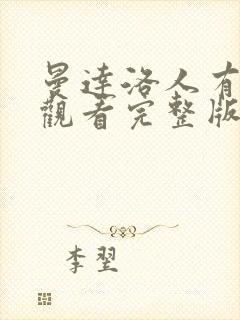 曼達洛人有
觀看完整版
李翌